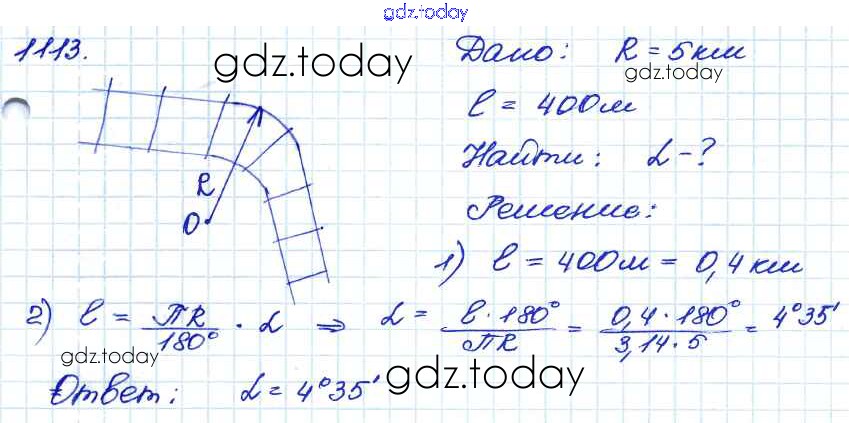 gdz.today
1113.
gdz.today
R
O
Дано: R = 5 км
gdz.today
ℓ = 400 м
Найти: α - ?
Решение:
1) ℓ = 400 м = 0,4 км
2) ℓ = πR/180° · α ⇒ α = ℓ · 180°/πR = 0,4 · 180°/3,14 · 5 = 4°35'
gdz.today
gdz.today
Ответ: α = 4°35'